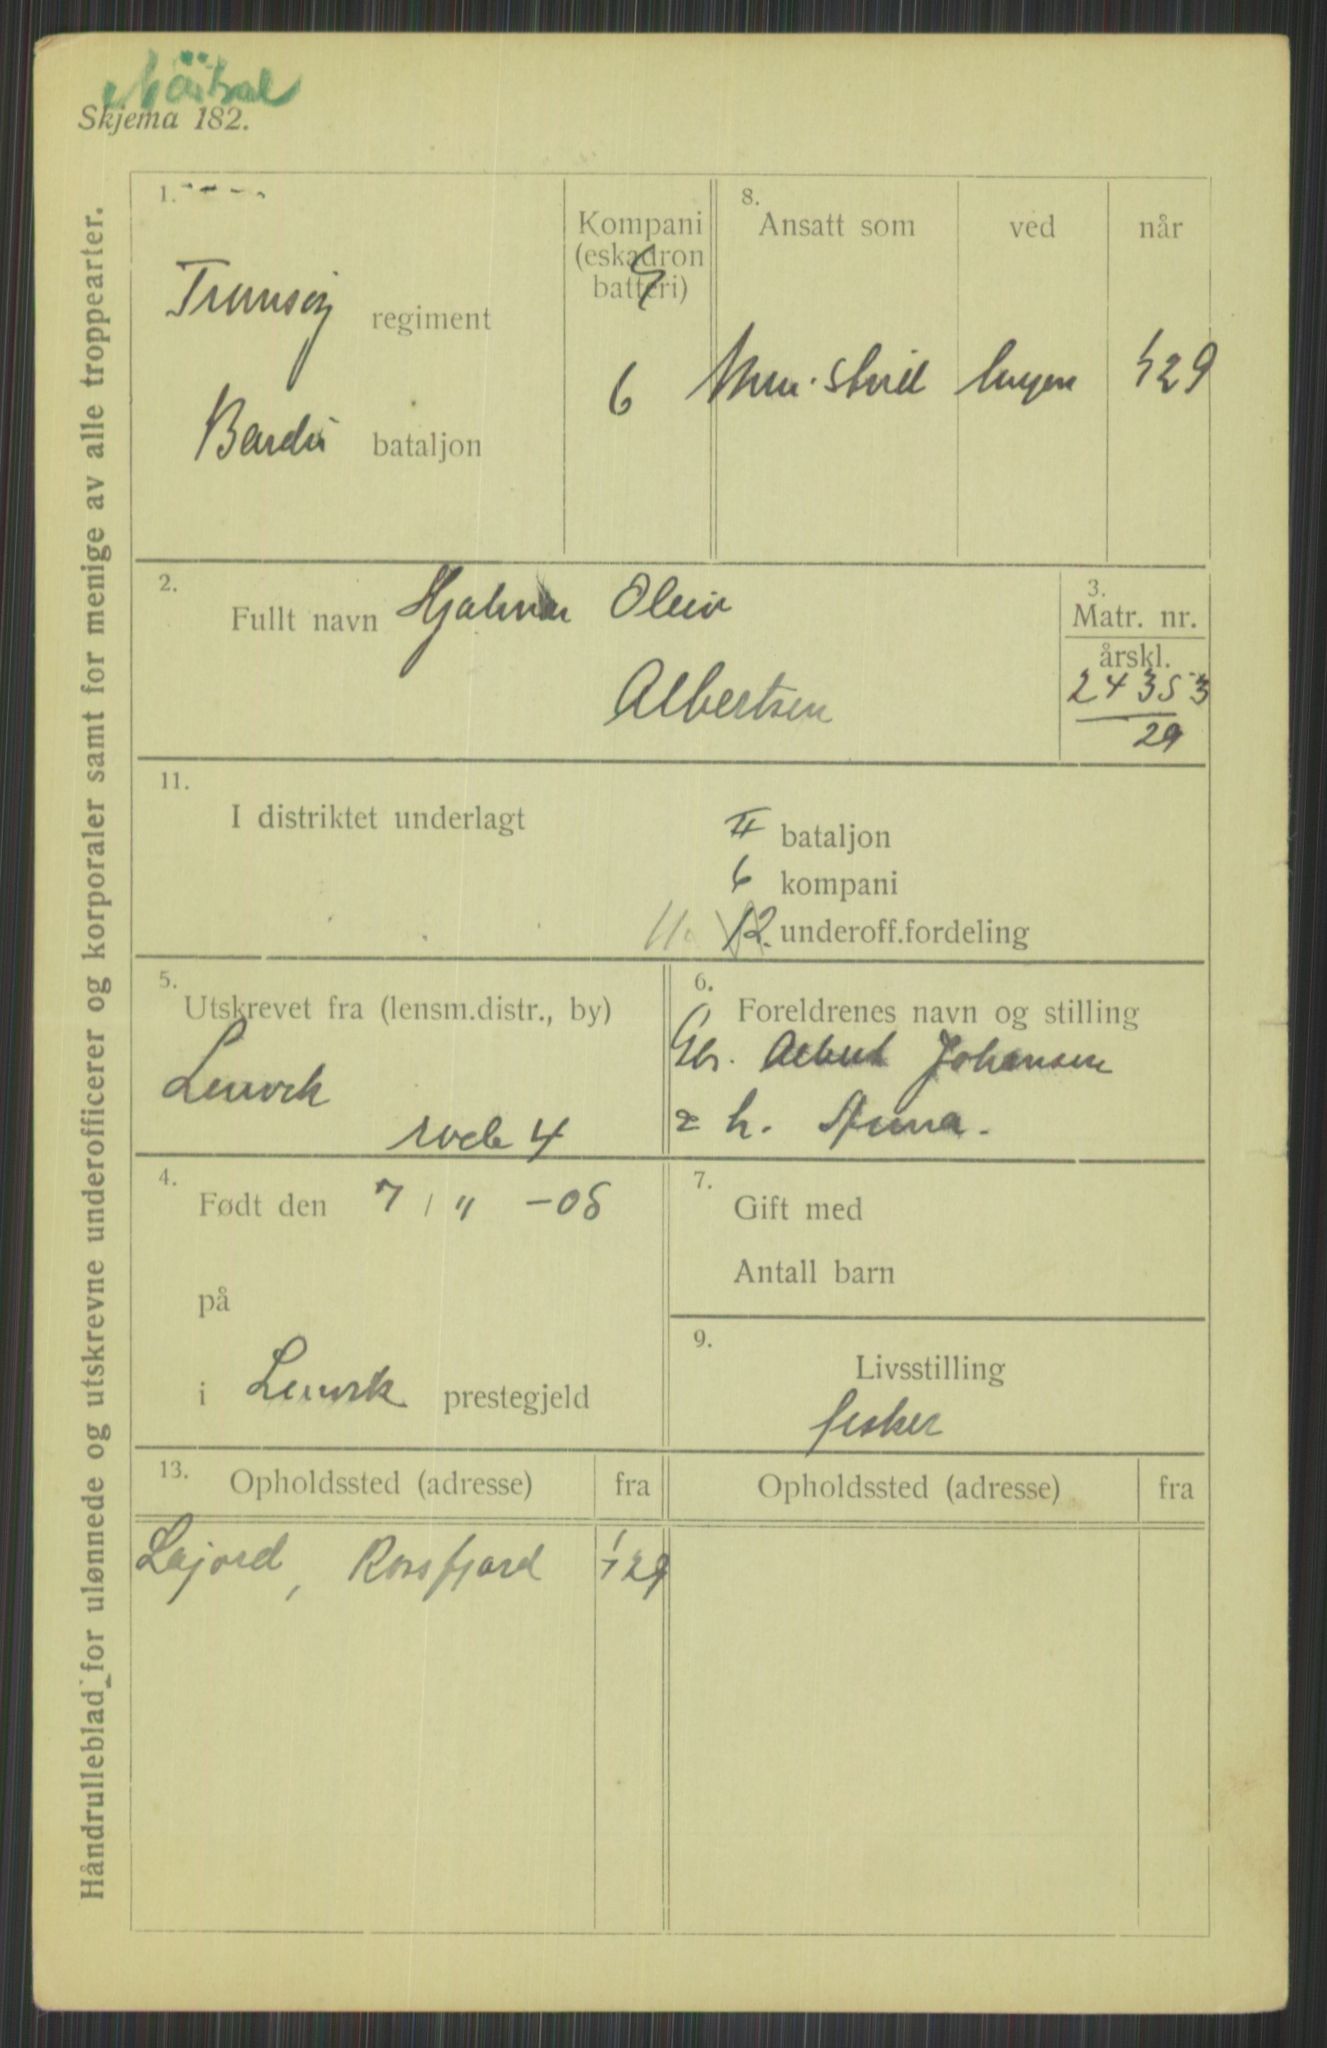 Skjema 182.
Håndrulleblad for ulønnede og utskrevne underofficerer og korporaler samt for menige av alle troppearter.
1.
Kompani
(eskadron
batteri)
8.
Ansatt som
ved
når
regiment
6
29
bataljon
2.
Fullt navn Hjalmar
Albertsen
3.
Matr. nr.
årskl.
24353
29
11.
I distriktet underlagt
II bataljon
6 kompani
11. 12. underoff.fordeling
5.
Utskrevet fra (lensm.distr., by)
Lenvik
rode 4
6.
Foreldrenes navn og stilling
Gbr. Albert Johansen
h. Anna.
4.
Født den 7 / 11 -08
på
i Lenvik prestegjeld
7.
Gift med
Antall barn
9.
Livsstilling
fisker
13.
Opholdssted (adresse)
fra
Opholdssted (adresse)
fra
Rossfjord
29